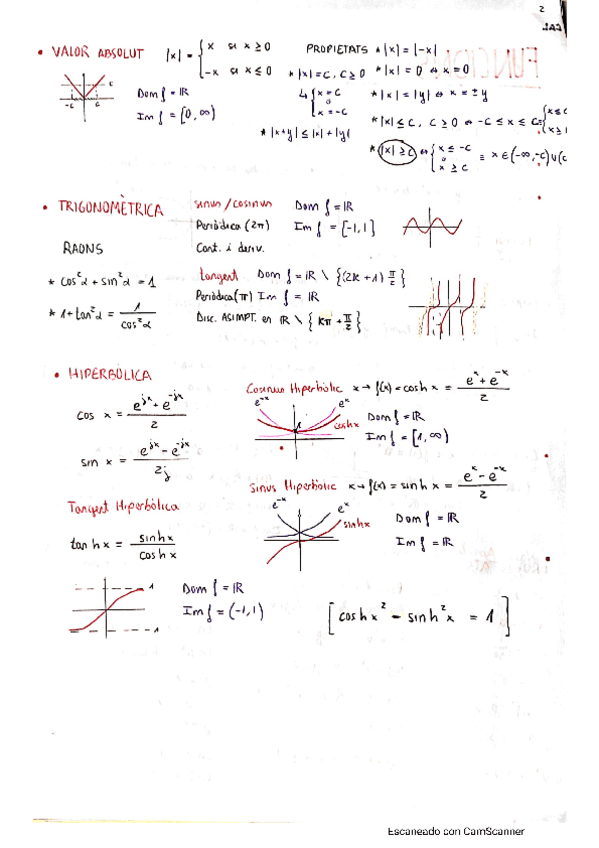 2
CAL
FUNCIONS
• VALOR ABSOLUT
|x| = { x si x ≥ 0
-x si x ≤ 0
Dom f = ℝ
Im f = [0, ∞)
-c c
c
PROPIETATS * |x| = |-x|
* |x| = c, c ≥ 0 * |x| = 0 ⇔ x = 0
↳ { x = c
o
x = -c
* |x| = |y| ⇔ x = ± y
* |x+y| ≤ |x| + |y|
* |x| ≤ c, c ≥ 0 ⇔ -c ≤ x ≤ c = { x ≤ c
x ≥
* |x| ≥ c ⇔ { x ≤ -c
o
x ≥ c
≡ x ∈ (-∞, -c) ∪ (c
• TRIGONOMÈTRICA
RAONS
* cos²α + sin²α = 1
* 1 + tan²α = 1 / cos²α
sinus / cosinus Dom f = ℝ
Periòdica (2π) Im f = [-1, 1]
Cont. i deriv.
tangent Dom f = ℝ \ {(2k + 1) π/2}
Periòdica (π) Im f = ℝ
Disc. ASIMPT. en ℝ \ {kπ + π/2}
• HIPERBÒLICA
cos x = (e^jx + e^-jx) / 2
sin x = (e^jx - e^-jx) / 2j
Cosinus Hiperbòlic x → f(x) = cosh x = (e^x + e^-x) / 2
e^-x e^x
1 coshx
Dom f = ℝ
Im f = [1, ∞)
Sinus Hiperbòlic x → f(x) = sinh x = (e^x - e^-x) / 2
e^-x e^x
sinhx
Dom f = ℝ
Im f = ℝ
Tangent Hiperbòlica
tanh x = sinh x / cosh x
1
-1
Dom f = ℝ
Im f = (-1, 1)
[cosh x² - sinh² x = 1]
Escaneado con CamScanner